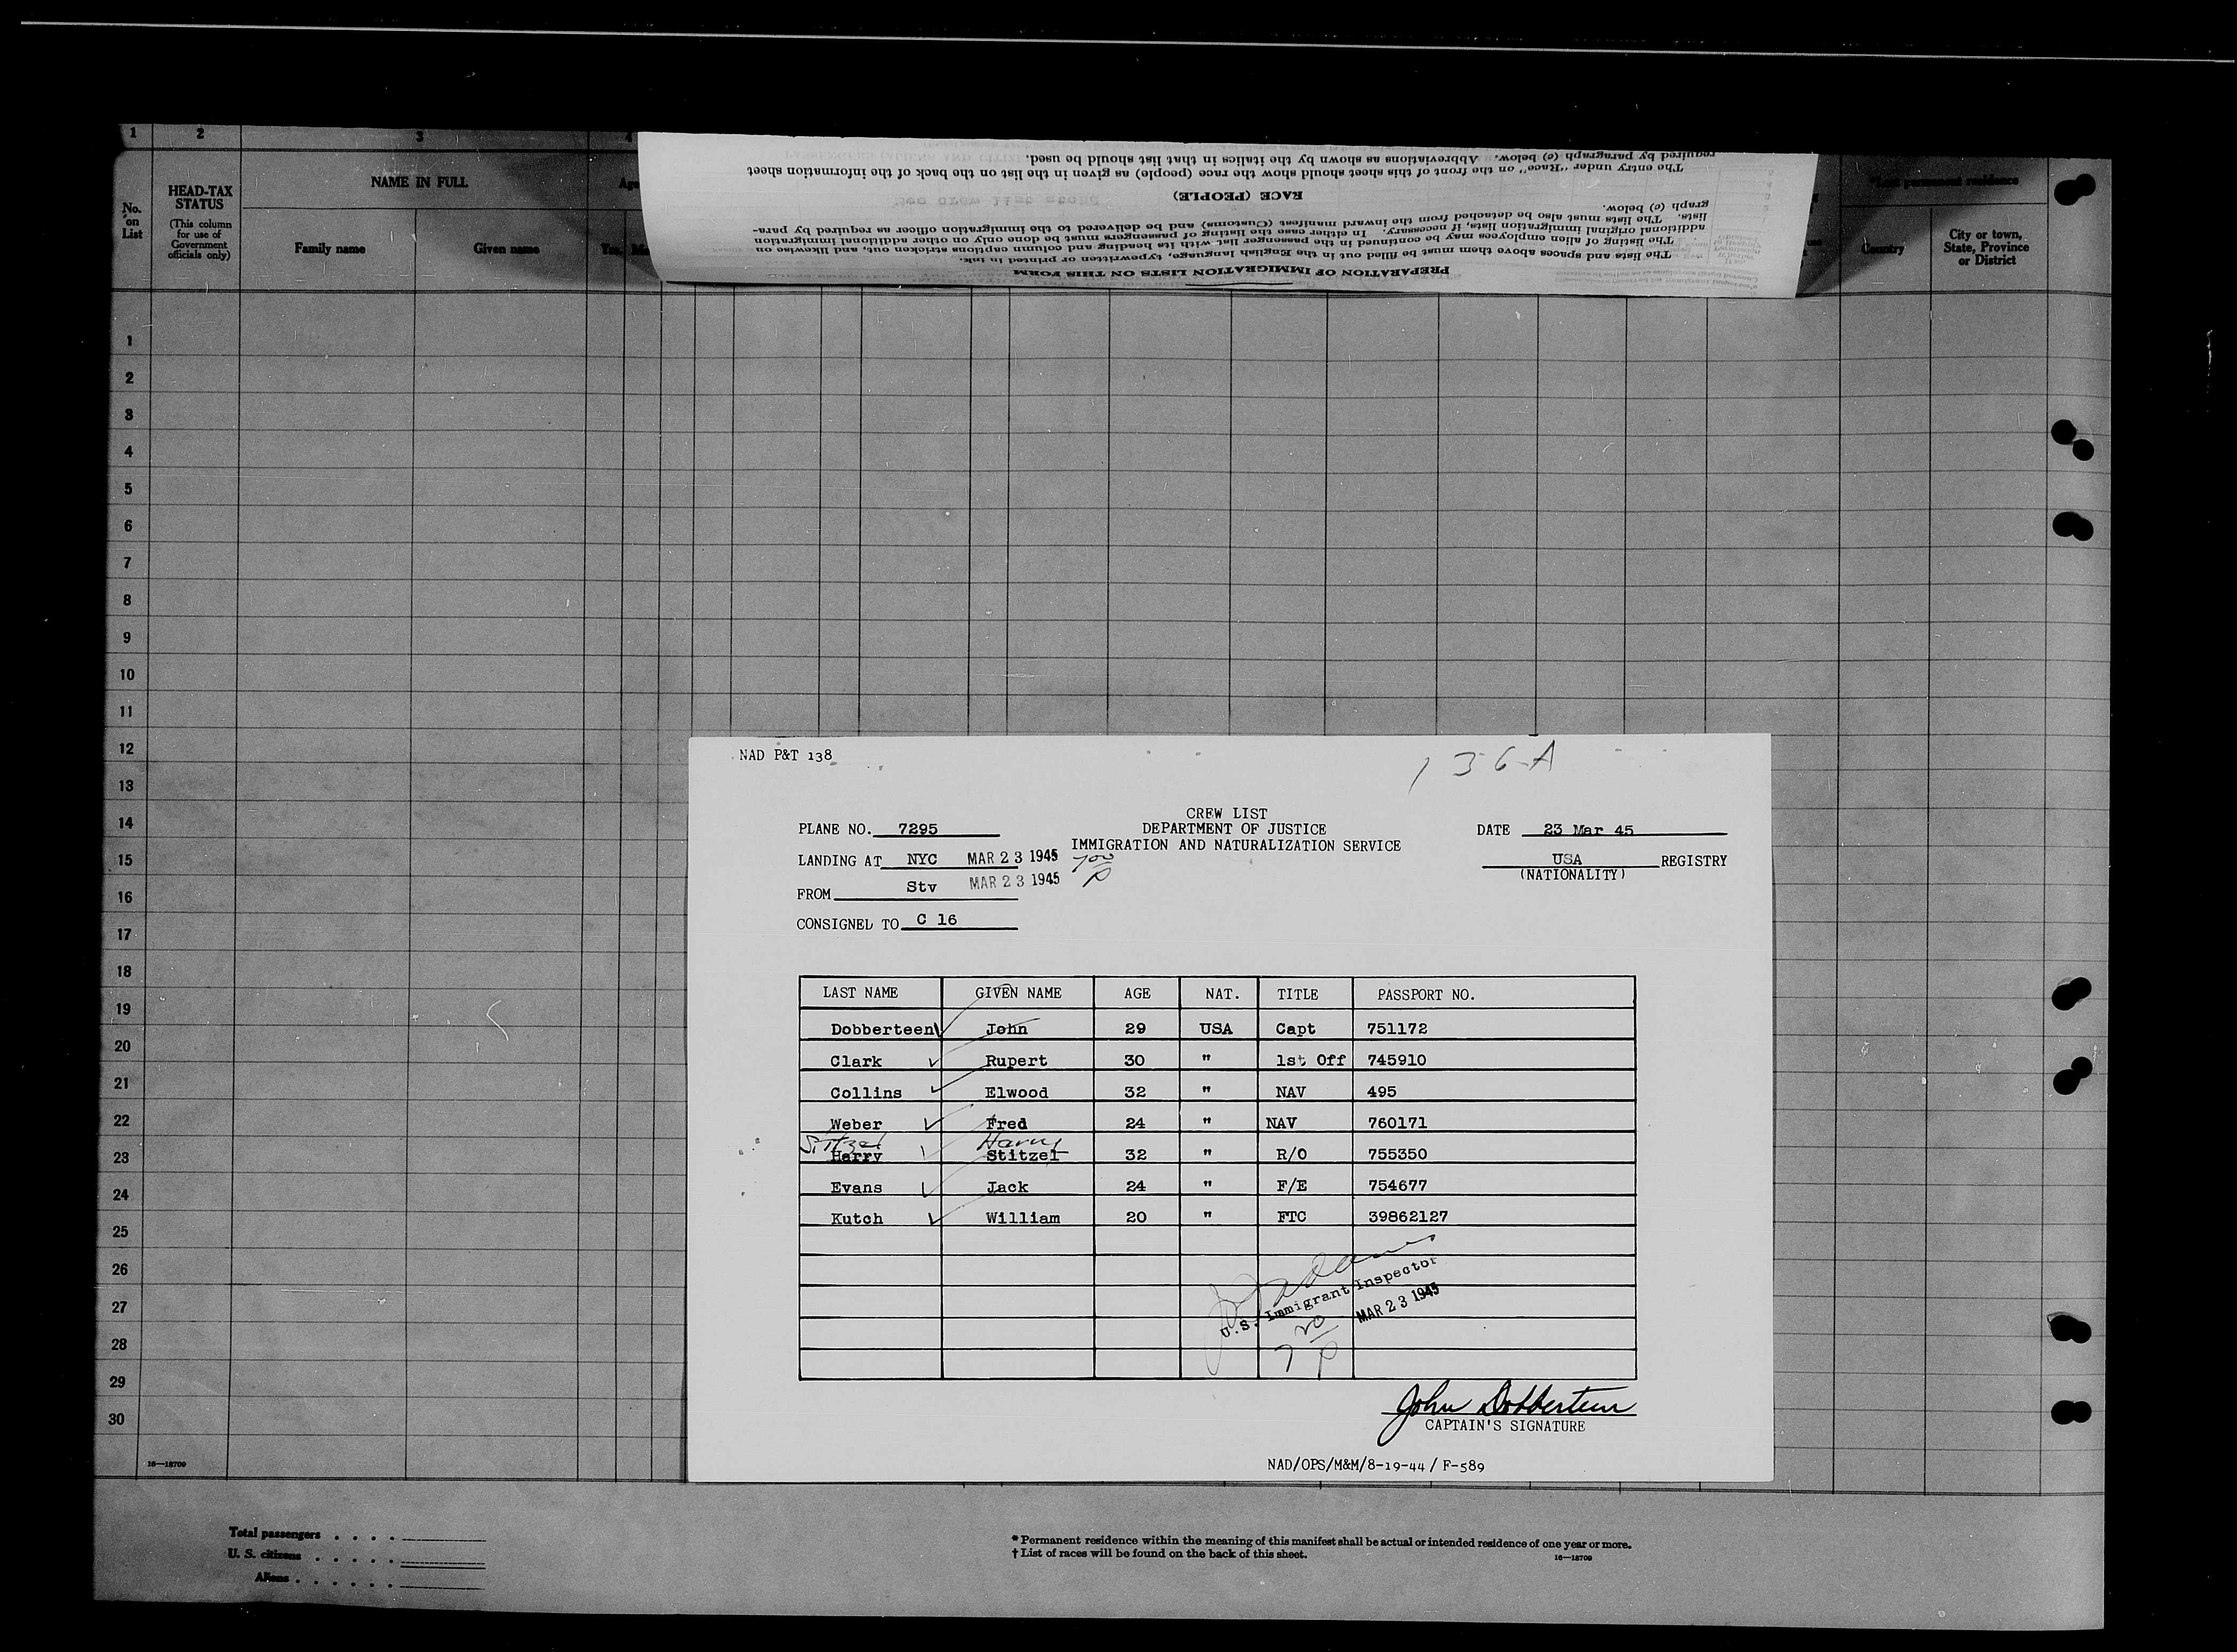 1 2 3 4
No. on List
HEAD-TAX STATUS
(This column for use of Government officials only)
NAME IN FULL
Family name
Given name
Age
Yrs.
*Last permanent residence
Country
City or town, State, Province or District
PREPARATION OF IMMIGRATION LISTS ON THIS FORM
The lists and spaces above them must be filled out in the English language, typewritten or printed in ink.
The listing of alien employees may be continued in the passenger list with its heading and column captions stricken out, and likewise on
additional original immigration lists, if necessary. In either case the listing of passengers must be done only on other additional immigration
lists. The lists must also be detached from the inward manifest (Customs) and be delivered to the immigration officer as required by para-
graph (e) below.
RACE (PEOPLE)
The entry under "Race" on the front of this sheet should show the race (people) as given in the list on the back of the information sheet
required by paragraph (e) below. Abbreviations as shown by the italics in that list should be used.
1
2
3
4
5
6
7
8
9
10
11
12
13
14
15
16
17
18
19
20
21
22
23
24
25
26
27
28
29
30
16—18709
NAD P&T 138
136-A
CREW LIST
PLANE NO. 7295 DEPARTMENT OF JUSTICE DATE 23 Mar 45
IMMIGRATION AND NATURALIZATION SERVICE
LANDING AT NYC MAR 23 1945 700 P USA REGISTRY
(NATIONALITY)
FROM Stv MAR 23 1945
CONSIGNED TO C 16
LAST NAME GIVEN NAME AGE NAT. TITLE PASSPORT NO.
Dobberteen John 29 USA Capt 751172
Clark Rupert 30 " 1st Off 745910
Collins Elwood 32 " NAV 495
Weber Fred 24 " NAV 760171
Stitzel Harry
Harry Stitzel 32 " R/O 755350
Evans Jack 24 " F/E 754677
Kutch William 20 " FTC 39862127
U.S. Immigrant Inspector
MAR 23 1945
7 20 P
John Dobberteen
CAPTAIN'S SIGNATURE
NAD/OPS/M&M/8-19-44 / F-589
Total passengers . . . .
U. S. citizens . . . . .
Aliens . . . . . .
* Permanent residence within the meaning of this manifest shall be actual or intended residence of one year or more.
† List of races will be found on the back of this sheet.
16—18709